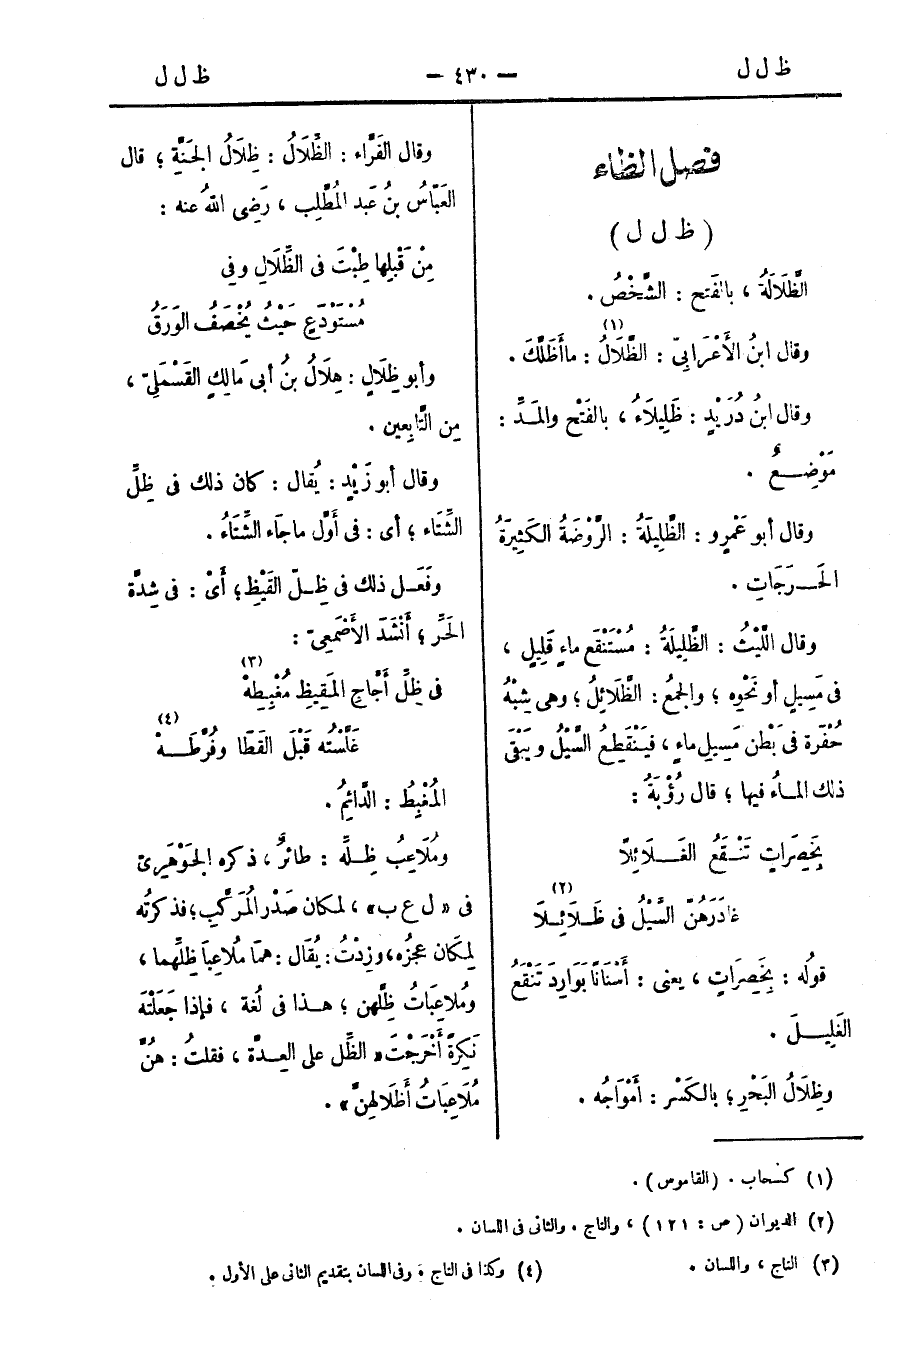 ظ ل ل
— ٤٣٠ —
ظ ل ل
فصل الظاء
( ظ ل ل )
الظَّلَالَةُ ، بالفَتح : الشَّخْصُ .
وقال ابنُ الأَعْرَابِيّ : الظَّلَالُ(١) : ماأَظَلَّكَ .
وقال ابنُ دُرَيْدٍ : ظَلِيلَاءُ ، بالفَتْح والمَدِّ :
مَوْضِــعٌ .
وقال أبو عَمْرٍو : الظَّلِيلَةُ : الرَّوْضَةُ الكَثِيرَةُ
الحَــرَجَاتِ .
وقال اللَّيْثُ : الظَّلِيلَةُ : مُسْتَنْقَع ماءٍ قَلِيلٍ ،
فى مَسِيلٍ أو نَحْوِه ؛ والجمعُ : الظَّلائِلُ ؛ وهى شِبْهُ
حُفْرَة فى بَطْن مَسِيلِ ماءٍ ، فيَنْقَطِعُ السَّيْلُ ويَبْقَى
ذلك المــاءُ فيها ؛ قال رُؤْبَةُ :
بِخَصِرَاتٍ تَنْــقَعُ الغَــلَائِلَا
غادَرَهُنّ السَّيْلُ فى ظَــلَائِــلَا(٢)
قولُه : بِخَصِرَاتٍ ، يعنى : أَسْنَانًا بَوَارِدَ تَنْقَعُ
الغَلِيــلَ .
وظِلَالُ البَحْرِ ؛ بالكَسْر : أَمْوَاجُه .
وقال الفَرَّاء : الظِّلَالُ : ظِلَالُ الجَنَّةِ ؛ قال
العَبَّاسُ بنُ عَبد المُطَّلِب ، رَضِى اللهُ عنه :
مِنْ قَبْلِها طِبْتَ فى الظِّلَالِ وفِى
مُسْتَوْدَعٍ حَيْثُ يُخْصَفُ الوَرَقُ
وأبو ظِلَالٍ : هِلَالُ بنُ أبى مَالِكٍ القَسْمَلِىّ ،
مِن التَّابِعين .
وقال أبو زَيْدٍ : يُقال : كان ذلك فى ظِلِّ
الشِّتَاء ؛ أى : فى أَوَّلِ ماجَاء الشِّتَاءُ .
وفَعَــل ذلك فى ظِــلّ القَيْظِ ؛ أَىْ : فى شِدَّة
الحَرِّ ؛ أَنْشَدَ الأَصْمَعِىّ :
فى ظِلِّ أَجَّاجِ المَقِيظِ مُغْبِطِهْ(٣)
غَلَّسْتُه قَبْلَ القَطَا وفُرَّطِــهْ(٤)
المُغْبِطُ : الدَّائِمُ .
ومُلَاعِبُ ظِــلِّه : طائرٌ ، ذكره الجَوْهَرِىّ
فى «ل ع ب» ، لمكان صَدْر المُرَكَّبِ ؛ فذكرتُه
لمكَان عجزُه ، وزِدْتُ : يُقَال : هُمَا مُلَاعِبَا ظِلِّهما ،
ومُلاعِبَاتُ ظِلِّهن ؛ هــذا فى لُغة ، فإذا جَعَلْتَه
نَكِرَةً أَخْرَجْتَ « الظِّل على العِــدَّة ، فقلتُ : هُنَّ
مُلَاعِبَاتُ أَظْلَالِهِنَّ » .
(١) كسحاب . (القاموس) .
(٢) الديوان (ص : ١٢١) ، والتاج . والثانى فى اللسان .
(٣) التاج ، واللسان .
(٤) وكذا فى التاج . وفى اللسان بتقديم الثانى على الأول .